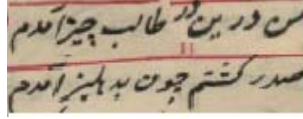 من درین در طالب چیز آمدم
صدر کشتم چون بدهلیز آمدم